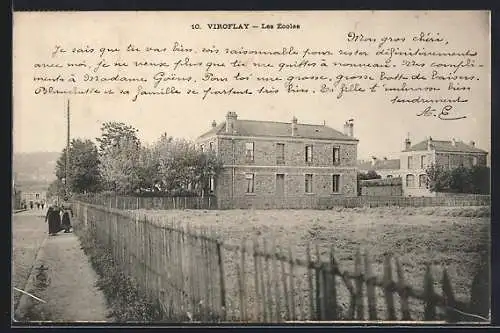 10. VIROFLAY — Les Ecoles
Mon gros chéri,
Je sais que tu vas bien, sois raisonnable pour rester définitivement
avec moi, je ne veux plus que tu me quittes à nouveau. Mes compli-
ments à Madame Pour toi une grosse, grosse botte de baisers.
Blanchette et sa famille se portent très bien. Sa fille t'embrasse bien
tendrement